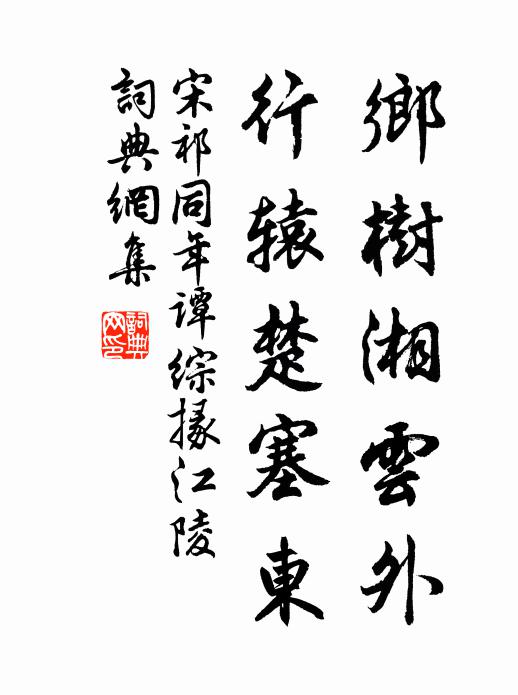 鄉樹湘雲外
行辕楚塞東
宋祁同年谭綜掾江陵
詞典網集
詞典
网印